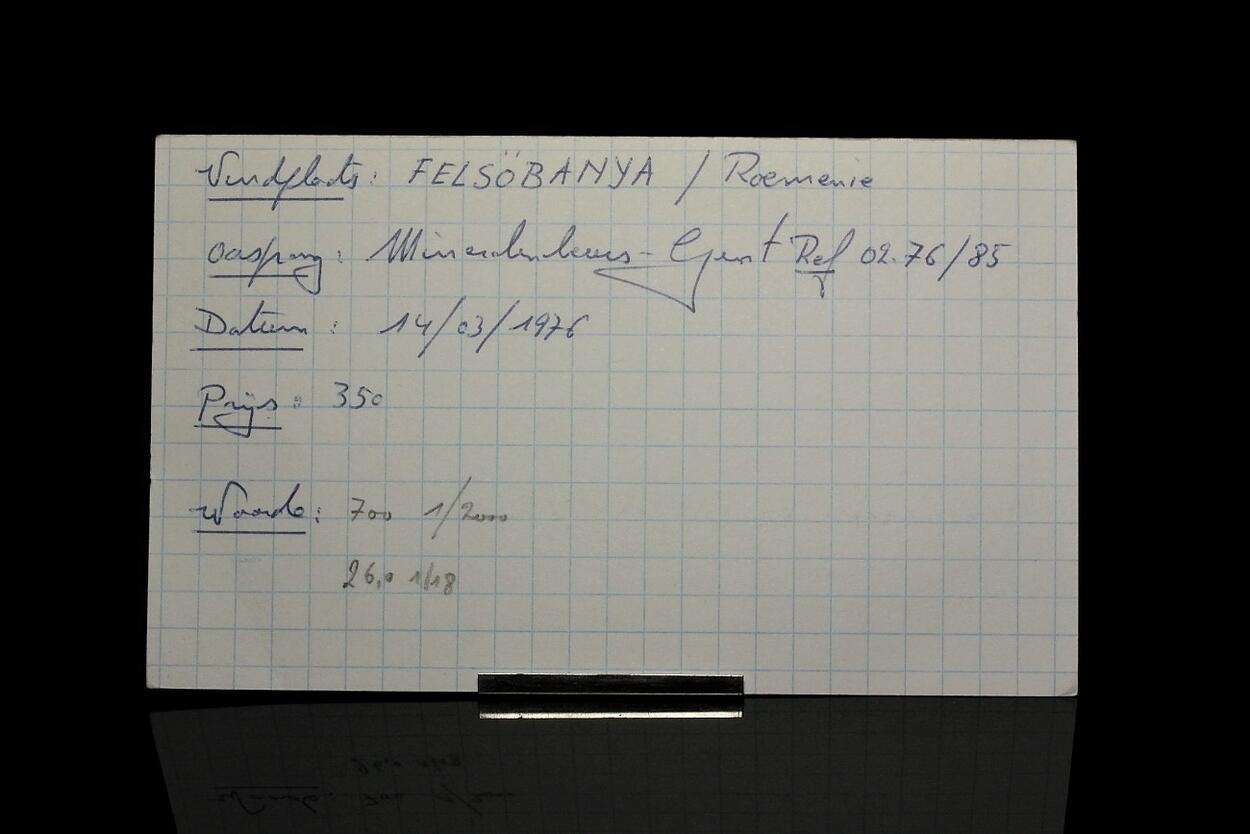 Vindplaats: FELSÖBANYA / Roemenie
Oorsprong: Mineralenbeurs - Gent Ref 02.76/85
Datum: 14/03/1976
Prijs: 350
Waarde: 700 1/2000
26,0 1/18